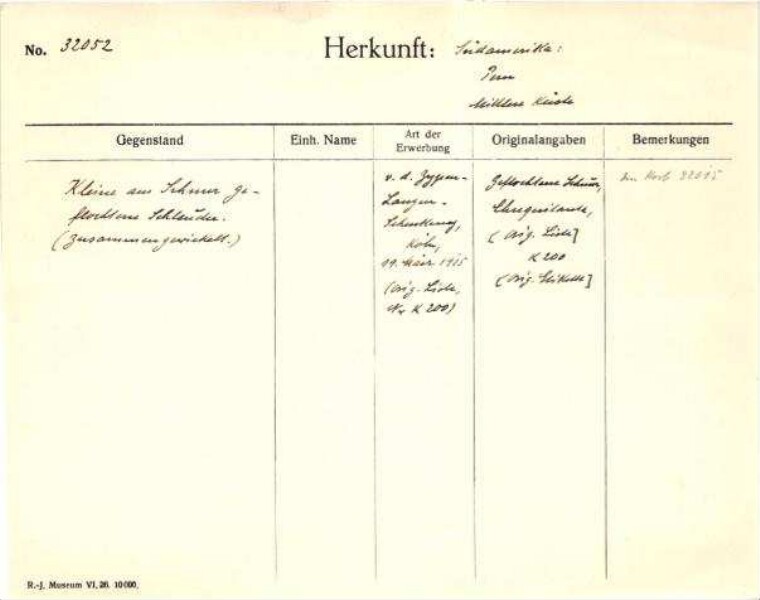 No. 32052
Herkunft: Südamerika:
Peru
Mittlere Küste
Gegenstand
Einh. Name
Art der
Erwerbung
Originalangaben
Bemerkungen
Kleine aus Schnur ge-
flochtene Schleuder.
(Zusammengewickelt.)
v. d. Zypen-
Langen-
Schenkung,
Köln,
1915
(Orig. Liste,
Nr K 200)
Geflochtene Schnur,
(Orig. Liste]
K 200
(Orig. Etikette]
Korb 32015
R.-J. Museum VI. 26. 10000.